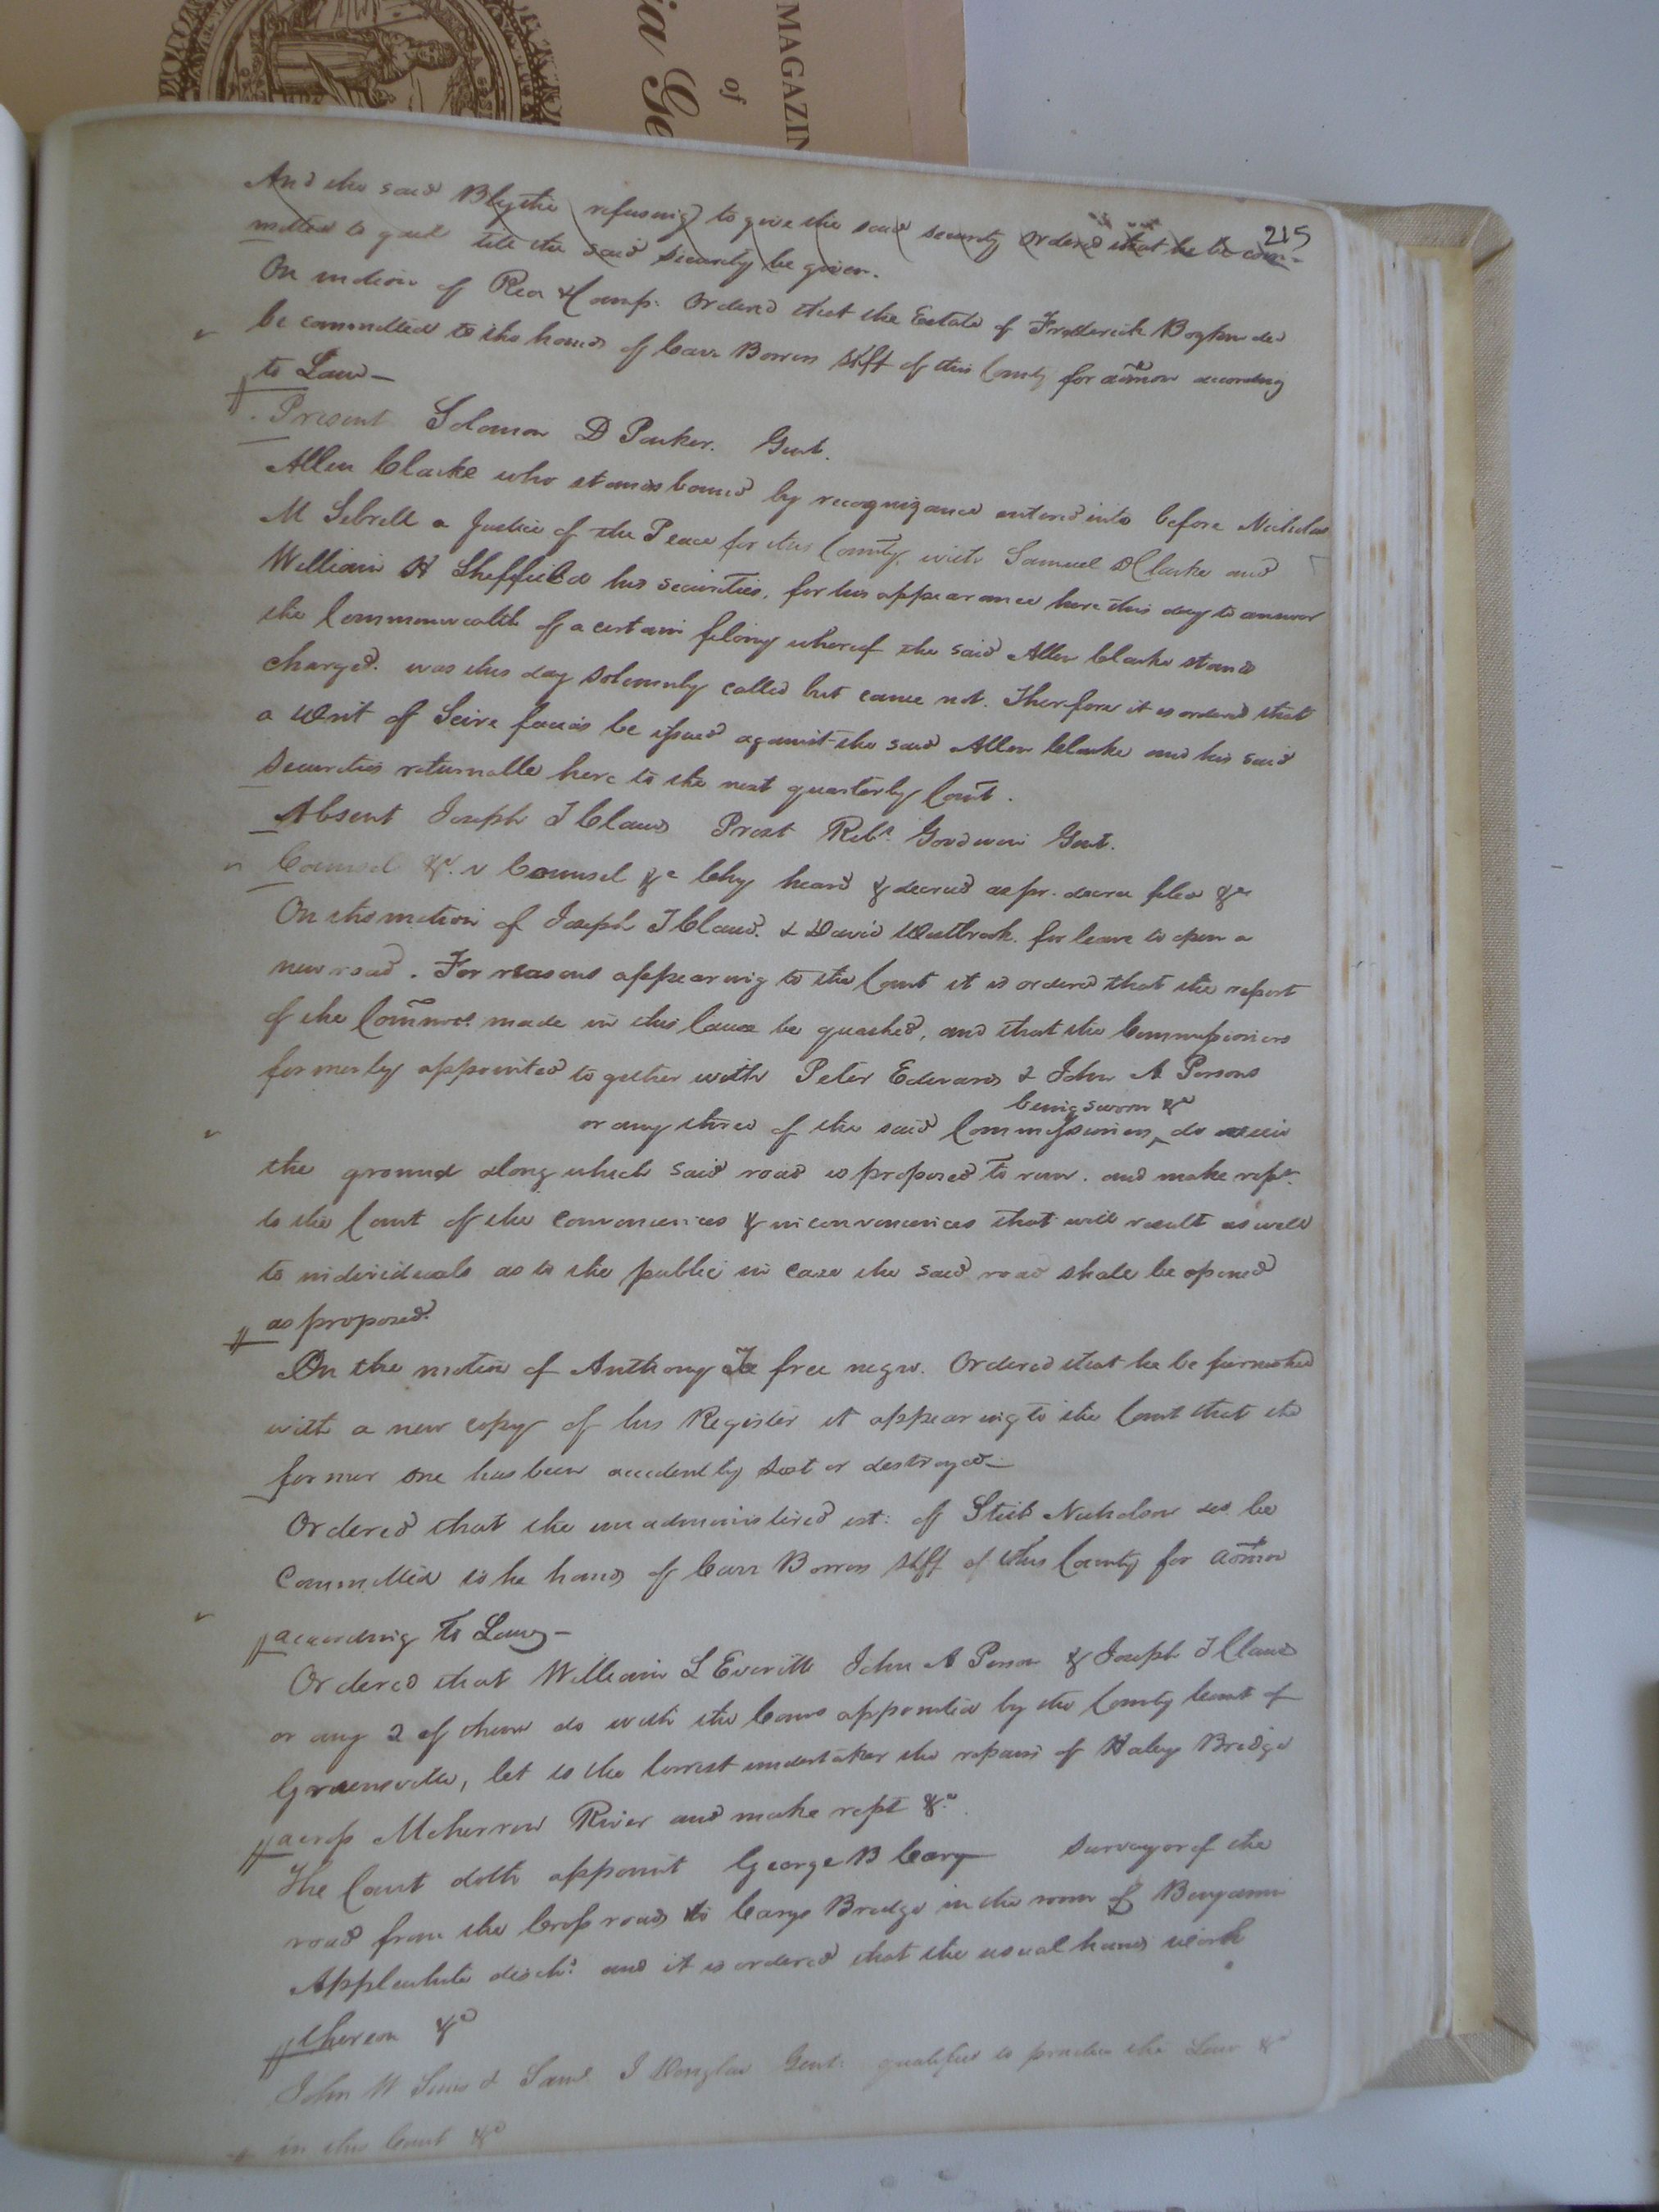 MAGAZIN
of
ia Ge
215
And the said Blythe refusing to give the said security ordered that he be com-
mitted to gaol till the said security be given.
On motion of Rea & Comp: Ordered that the Estate of Frederick Boykin decd
be committed to the hands of Carr Bowers Shff of this County for admon according
to Law—
Present Solomon D Parker. Gent.
Allen Clarke who stands bound by recognizance entered into before Nicholas
M Sebrell a Justice of the Peace for this County, with Samuel D Clarke and
William H Sheffield his securities, for his appearance here this day to answer
the Commonwealth of a certain felony whereof the said Allen Clarke stands
charged. was this day solemnly called but came not. Therefore it is ordered that
a Writ of Scire facias be issued against the said Allen Clarke and his said
Securities returnable here to the next quarterly Court.
Absent Joseph T Claud Prest Robt. Goodwin Gent.
Counsel &c. v Counsel &c Chy heard & decreed as pr. decree filed &c
On the motion of Joseph T Claud. & David Westbrook. for leave to open a
new road. For reasons appearing to the Court it is ordered that the report
of the Commrs. made in this Cause be quashed, and that the Commissioners
formerly appointed together with Peter Edwards & John A Persons
being sworn &c
or any three of the said Commissioners, do view
the ground along which said road is proposed to run. and make rept.
to the Court of the conveniences & inconveniences that will result as well
to individuals as to the public in case the said road shall be opened
as proposed.
On the motion of Anthony free negro. Ordered that he be furnished
with a new copy of his Register it appearing to the Court that the
former one has been accidently lost or destroyed—
Ordered that the unadministered est: of Nicholson decd be
Committed to he hands of Carr Bowers Shff of this County for admon
according to Law—
Ordered that William L Everitt John A Person & Joseph T Claud
or any 2 of them do with the Coms appointed by the County Court of
Greensville, let to the lowest undertaker the repairs of Haleys Bridge
across Meherrin River and make rept &c.
The Court doth appoint George B Cary Surveyor of the
road from the Cross roads to Carys Bridge in the room of Benjamin
Applewhite disch: and it is ordered that the usual hands work
thereon &c
John W & Saml J Douglas Gent: qualified to practice the Law &c
in this Court &c